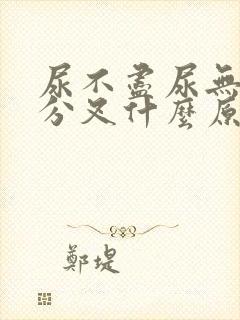 尿不盡尿無
分叉什麼原
鄭堤